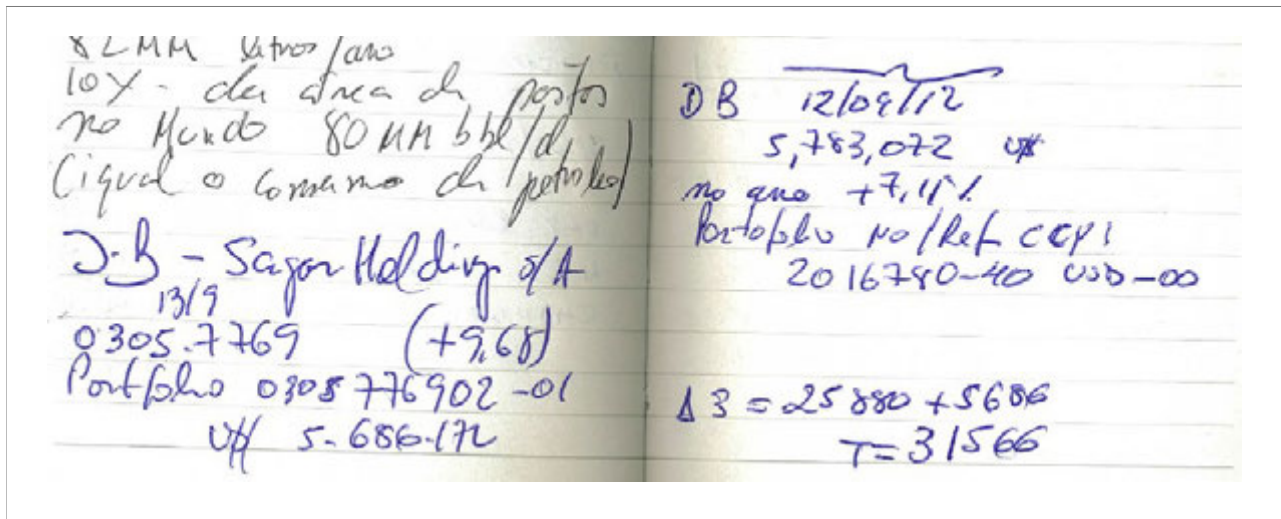 82MM litros/ano
10X - da área de postos
no Mundo 80 MM bbl/d,
(igual o consumo de petróleo)
D.B - Sagar Holding s/A
13/9
0305.7769 (+9,68)
Portfolio 0305776902-01
U$ 5.686.172
DB 12/09/12
5,783,072 U$
no ano +7,15%
Portofolio No/Ref CCPI
2016780-40 USD-00
Δ3 = 25880 + 5686
T= 31566